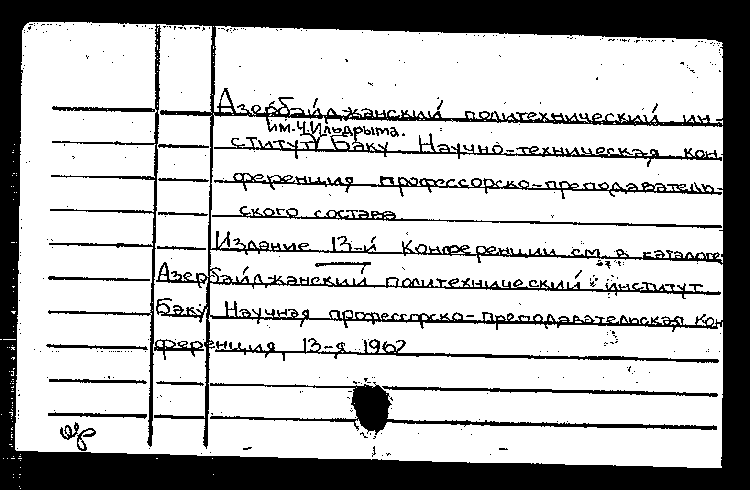 Азербайджанский политехнический ин-
им. Ч. Ильдрыма.
ститут Баку Научно-техническая кон
ференция профессорско-преподаватель-
ского состава
Издание 13-й Конференции см. в каталоге
Азербайджанский политехнический институт
Баку Научная профессорско-преподавательская кон
ференция, 13-я 1962